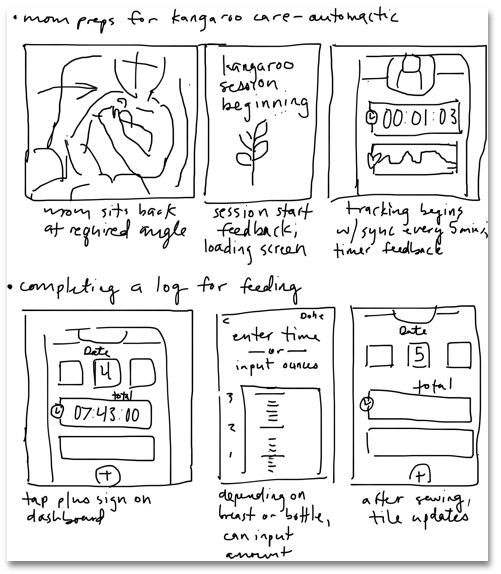 • mom preps for kangaroo care - automactic
kangaroo
session
beginning
00:01:03
mom sits back
at required angle
session start
feedback,
loading screen
tracking begins
w/ sync every 5 mins,
timer feedback
• completing a log for feeding
Date
4
total
07:43:00
+
tap plus sign on
dashboard
< Done
enter time
— or —
input ounces
3
2
1
depending on
breast or bottle,
can input
amount
Date
5
total
+
after sewing,
tile updates